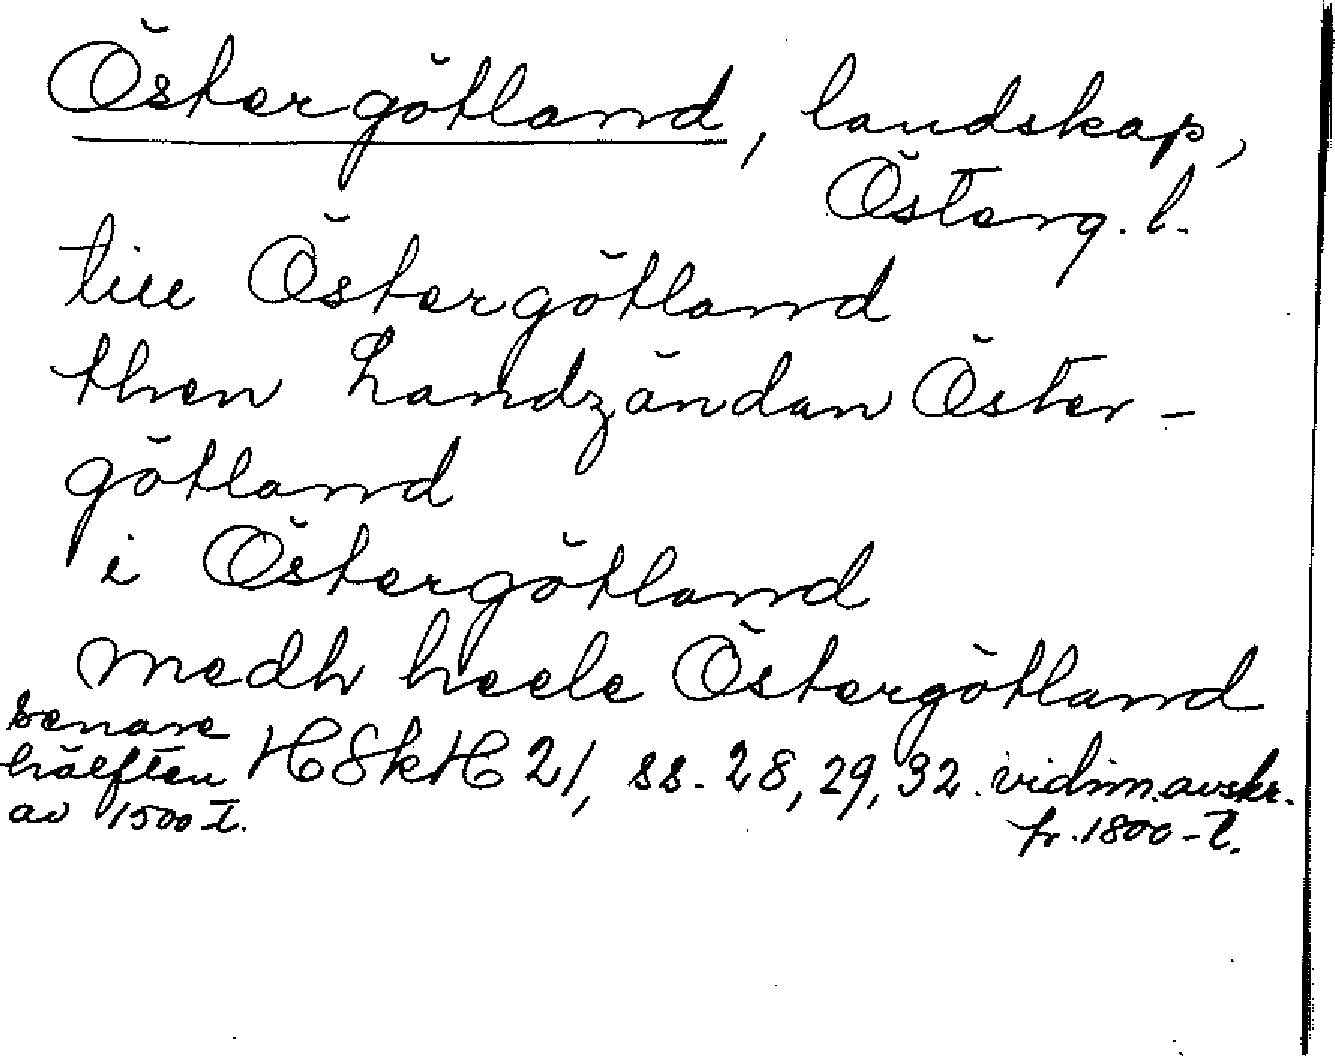 Östergötland, landskap,
Österg. l.
till Östergötland
then Landzändan Öster-
götland
i Östergötland
medh heele Östergötland
senare
hälften HSkH 21, ss. 28, 29, 32. vidim. avskr.
av 1500-t. fr. 1800-t.